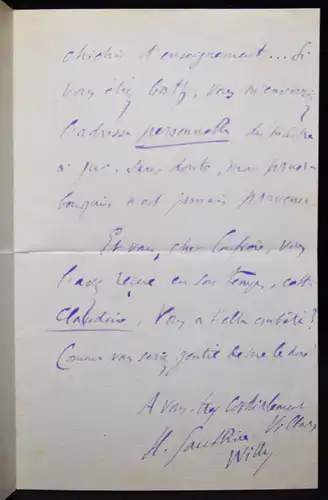 d'enseignement... Si
vous étiez gentil, vous m'enverriez
l'adresse personnelle du maître
à qui, sans doute, mon
bouquin n'est jamais parvenu.
Et vous, cher Confrère, vous
l'avez reçue en son temps, cette
Claudine, Vous a-t-elle embêté?
Comme vous seriez gentil de me le dire!
A vous, très cordialement
H. Gauthier Villars
Willy